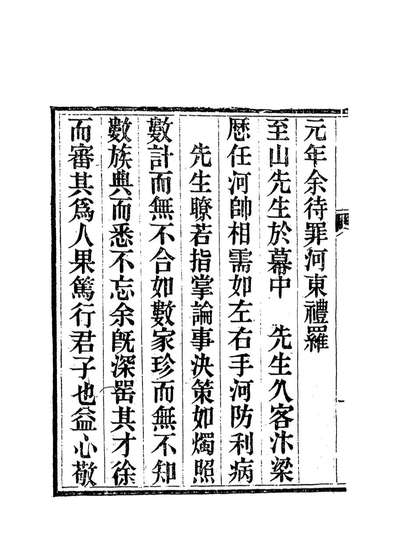 元年余待罪河東禮羅
至山先生於幕中　先生久客汴梁
歷任河帥相需如左右手河防利病
先生瞭若指掌論事決策如燭照
數計而無不合如數家珍而無不知
數族典而悉不忘余旣深噐其才徐
而審其爲人果篤行君子也益心敬